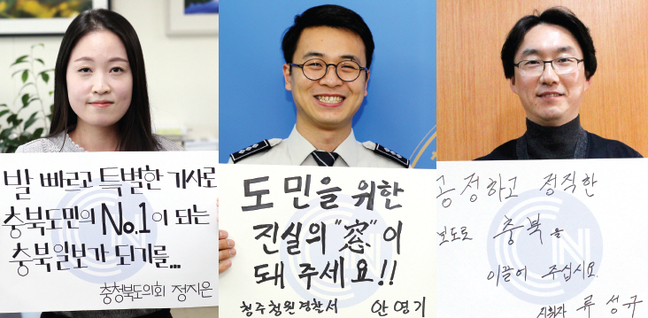 발 빠르고 특별한 기사로
충북도민의 No.1이 되는
충북일보가 되기를...
충청북도의회 정지은
도민을 위한
진실의 "窓"이
돼 주세요!!
청주청원경찰서 안영기
공정하고 정직한
보도로 충북을
이끌어 주십시오
류성규